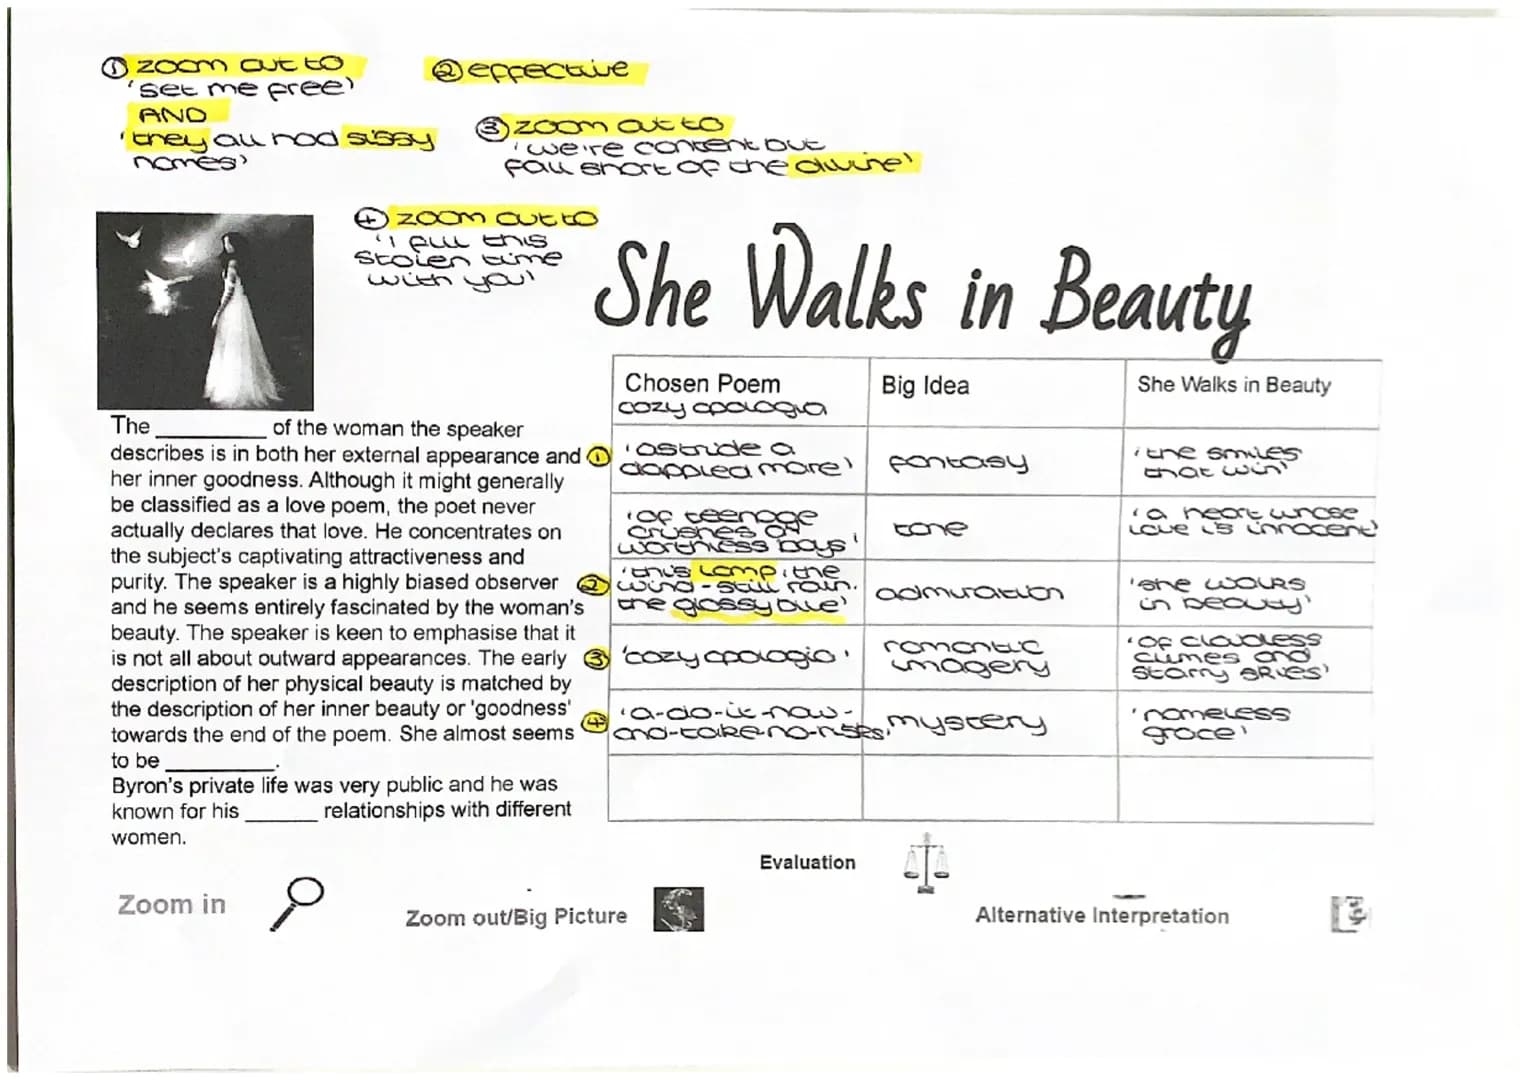 ① zoom out to
'set me free'
AND
'they all had sissy
names'
② effective
③ zoom out to
'we're content but
fall short of the divine'
④ zoom out to
'I fill this
stolen time
with you'
She Walks in Beauty
The ________ of the woman the speaker
describes is in both her external appearance and
her inner goodness. Although it might generally
be classified as a love poem, the poet never
actually declares that love. He concentrates on
the subject's captivating attractiveness and
purity. The speaker is a highly biased observer
and he seems entirely fascinated by the woman's
beauty. The speaker is keen to emphasise that it
is not all about outward appearances. The early
description of her physical beauty is matched by
the description of her inner beauty or 'goodness'
towards the end of the poem. She almost seems
to be ________.
Byron's private life was very public and he was
known for his ______ relationships with different
women.
Chosen Poem
cozy apologia
Big Idea
She Walks in Beauty
① 'astride a
dappled mare'
fantasy
'the smiles
that win'
'of teenage
crushes on
worthless boys'
tone
'a heart whose
love is innocent'
② 'this lamp, the
wind-still rain.
the glossy blue'
admiration
'she walks
in beauty'
③ 'cozy apologia'
romantic
imagery
'of cloudless
climes and
starry skies'
④ 'a-do-it-now-
and-take-no-rises'
mystery
'nameless
grace'
Evaluation
Zoom in
Zoom out/Big Picture
Alternative Interpretation